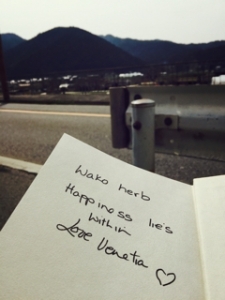 Wako herb
Happiness lie's
within
Love Venetia ♡